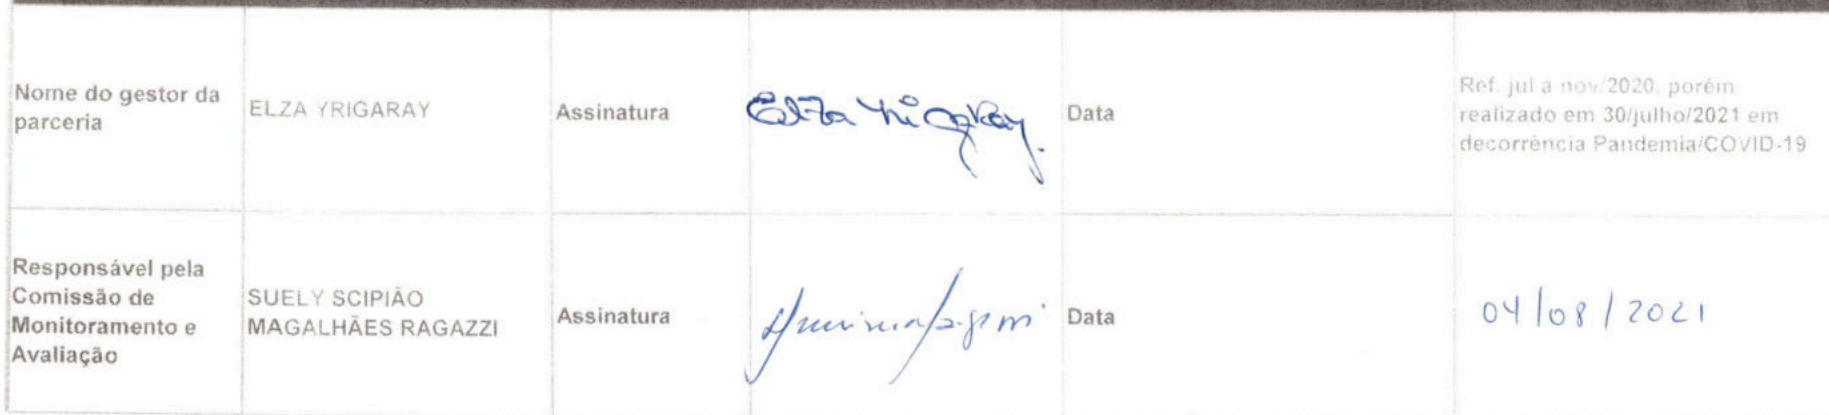 Nome do gestor da
parceria
ELZA YRIGARAY
Assinatura
Elza Yrigaray
Data
Ref. jul a nov/2020, porém
realizado em 30/julho/2021 em
decorrência Pandemia/COVID-19
Responsável pela
Comissão de
Monitoramento e
Avaliação
SUELY SCIPIÃO
MAGALHÃES RAGAZZI
Assinatura
Data
04/08/2021